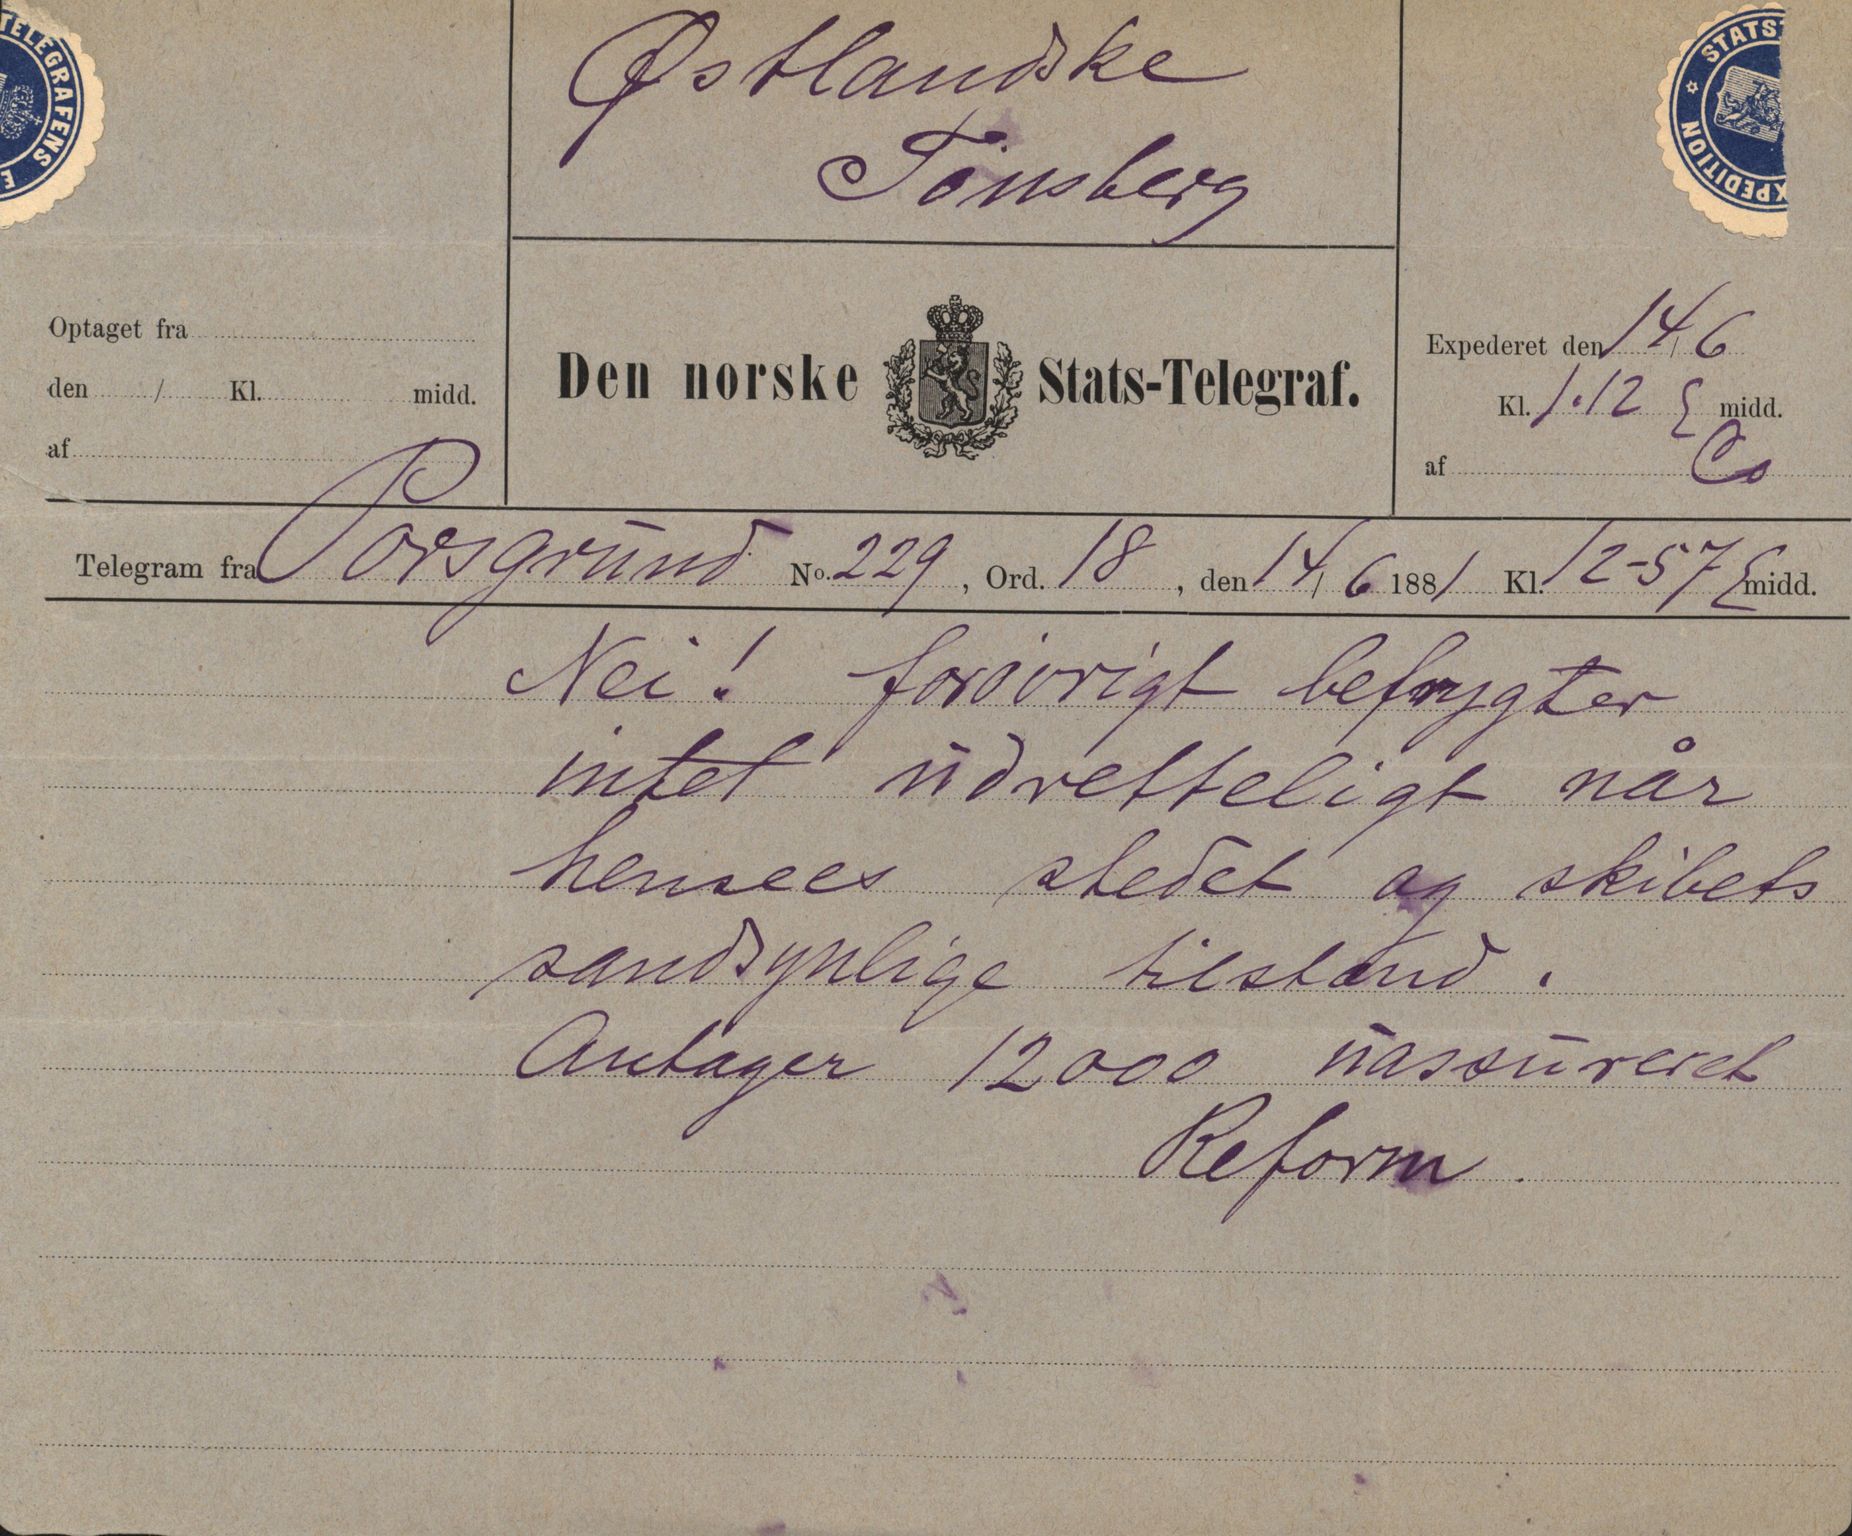 TELEGRAFENS E
Østlandske
Tönsberg
STATS XPEDITION
Optaget fra
den / Kl. midd.
af
Den norske Stats-Telegraf.
Expederet den 14/6
Kl. 1.12 E midd.
af Co
Telegram fra Porsgrund No. 229, Ord. 18, den 14/6 1881 Kl. 12-57 E midd.
Nei! forövrigt befrygter
intet udretteligt når
hensees stedet og skibets
sandsynlige tilstand.
Antager 12000 uassureret
Reform.